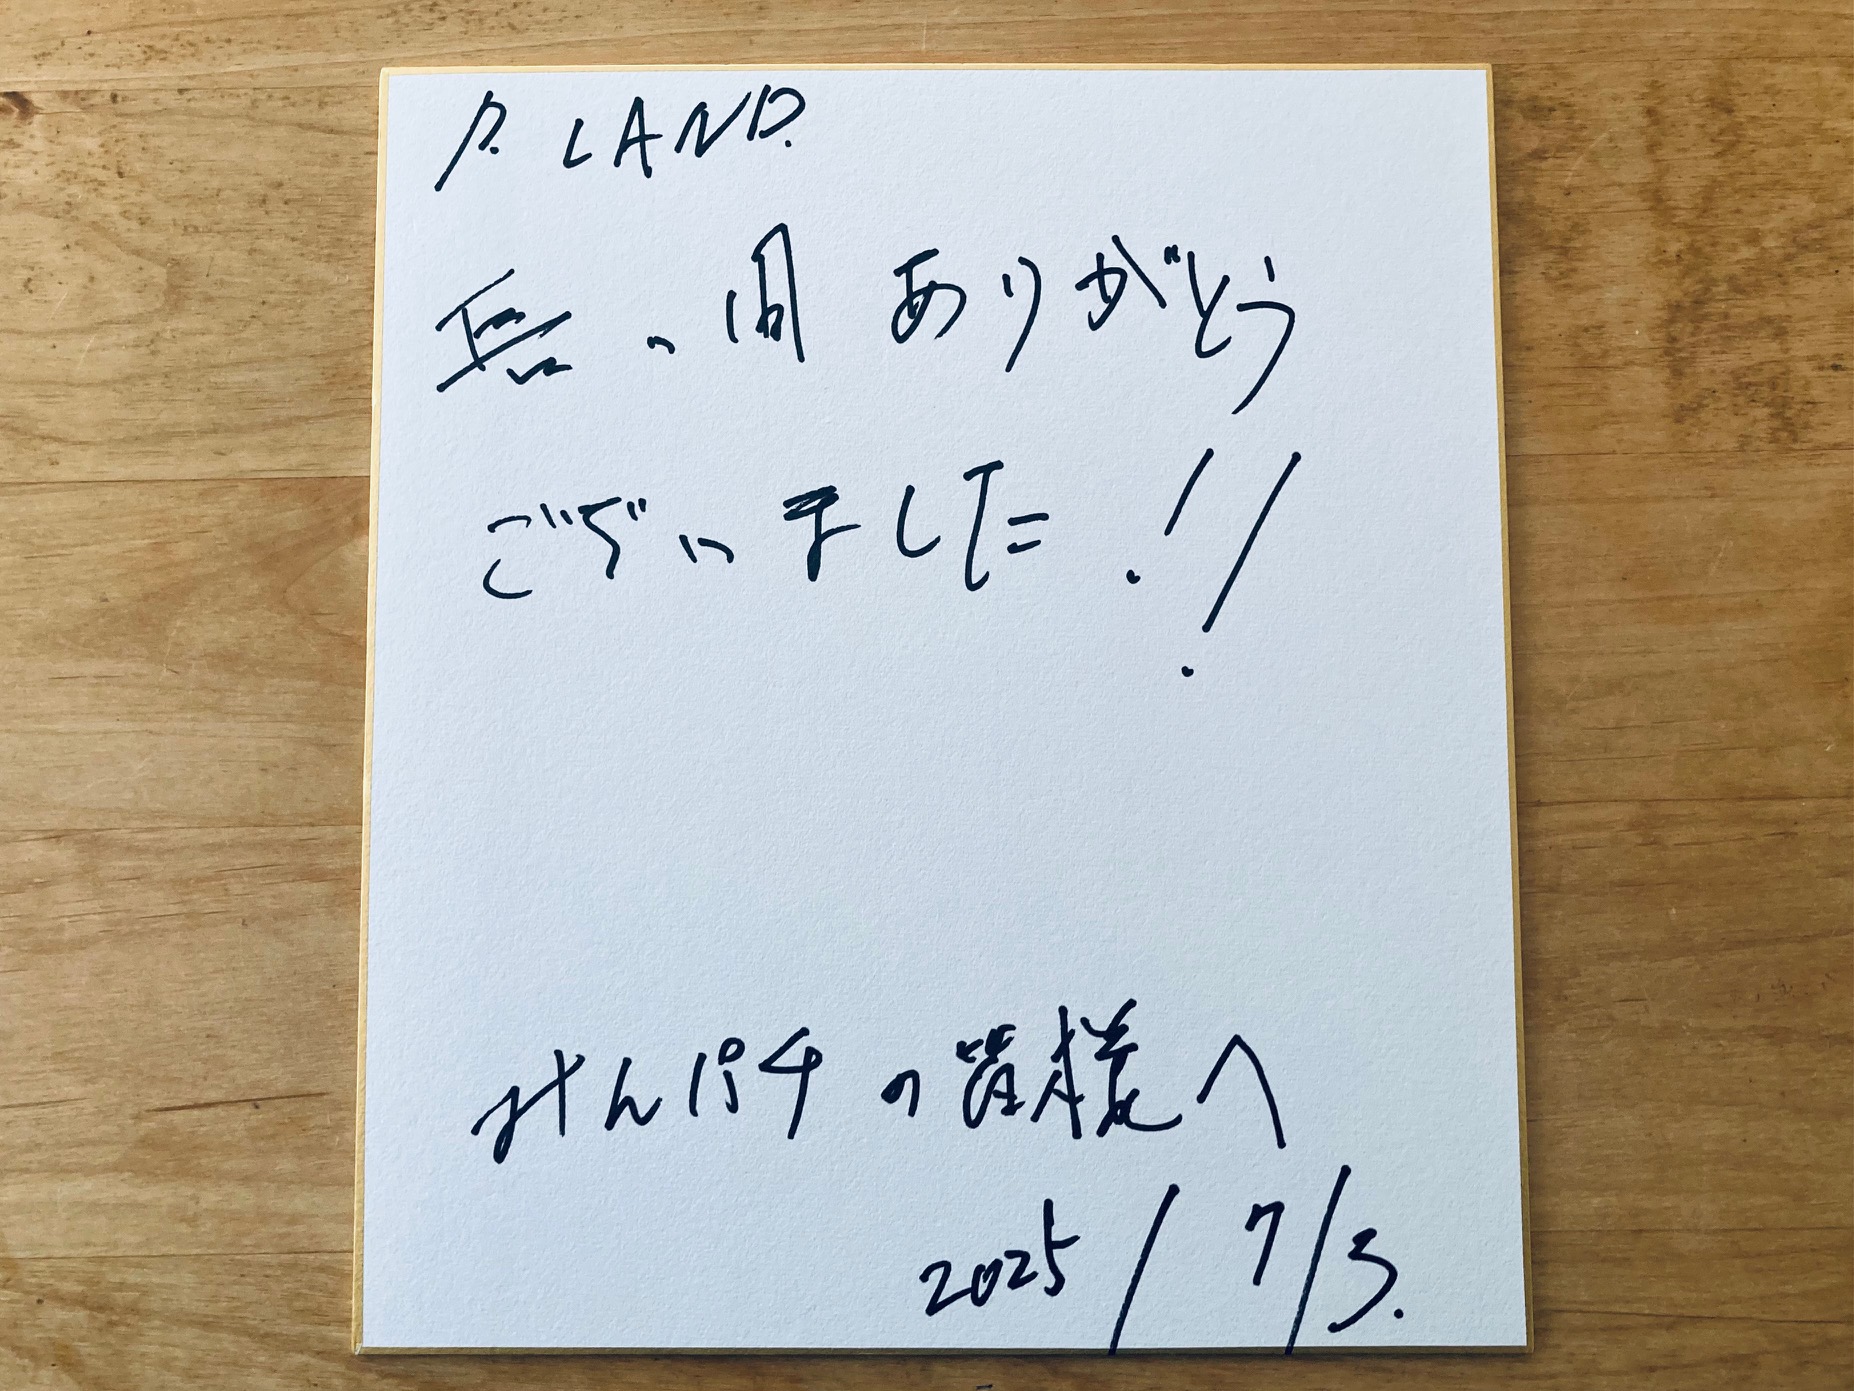 P. LAND.
長い間 ありがとう
ございました!!
みんパチの皆様へ
2025/7/3.